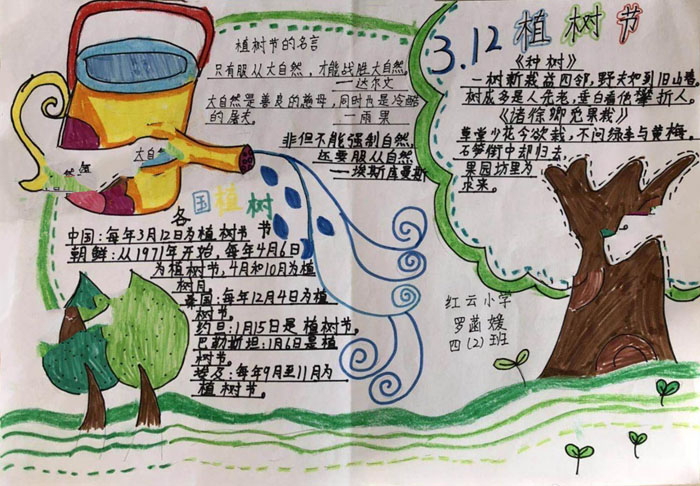 植树节的名言
只有服从大自然，才能战胜大自然。
—达尔文
大自然是善良的慈母，同时也是冷酷
的屠夫。 —雨果
非但不能强制自然，
还要服从自然。
—埃斯库曼斯
大自然
各国植树
节
中国：每年3月12日为植树节
朝鲜：从1971年开始，每年4月6日
为植树节，4月和10月为植
树月。
国：每年12月4日为植
树节。
约旦：1月15日是植树节。
巴勒斯坦：1月6日是植
树节。
埃及：每年9月至11月为
植树节。
3.12植树节
《种树》
一树新栽益四邻，野夫如到旧山春。
树成多是人先老，垂白看他攀折人。
《诣徐卿觅果栽》
草堂少花今欲栽，不问绿李与黄梅。
石笋街中却归去
果园坊里为
求来。
红云小学
罗菡媛
四（2）班